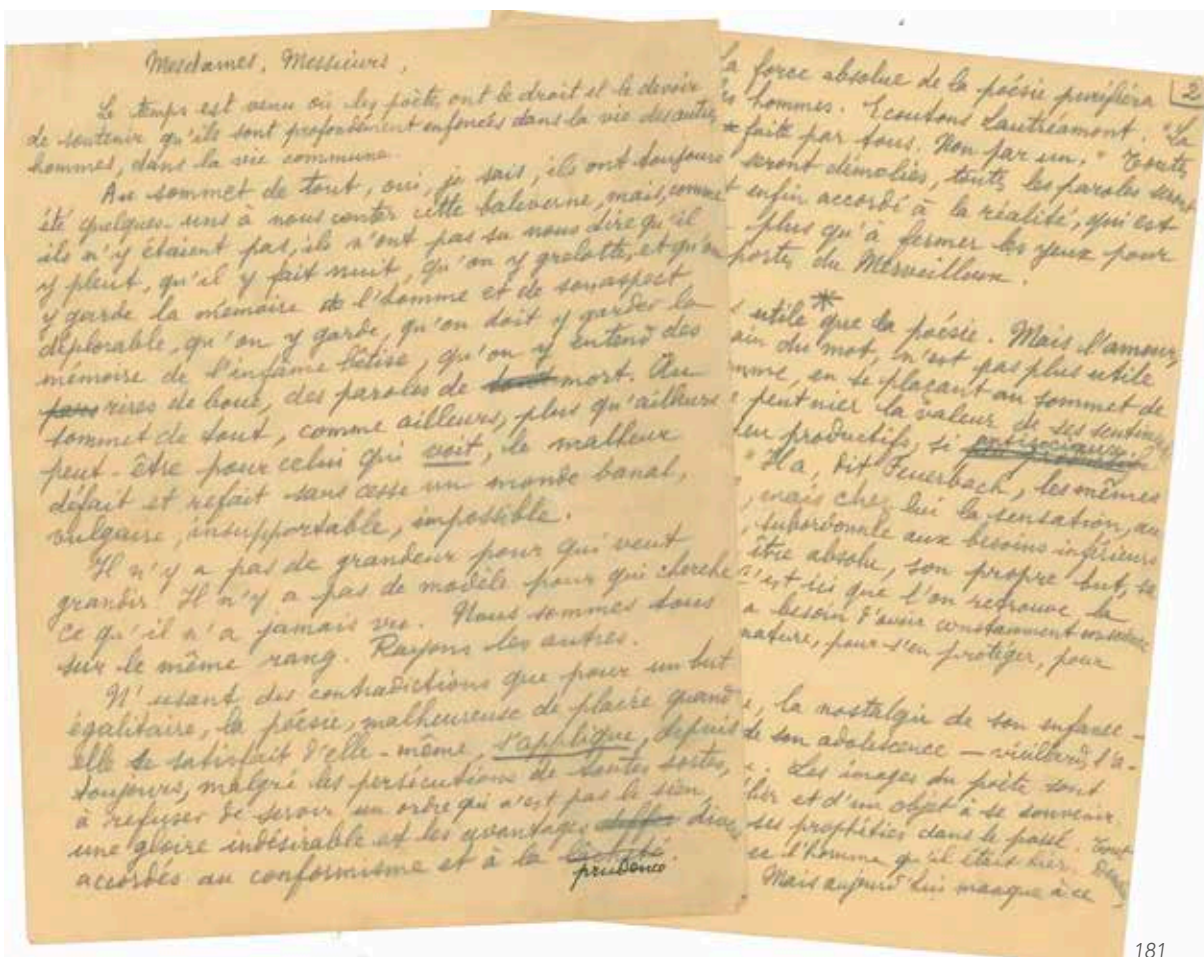 Mesdames, Messieurs,
Le temps est venu où les poètes ont le droit et le devoir
de soutenir qu'ils sont profondément enfoncés dans la vie des autres
hommes, dans la vie commune.
Au sommet de tout, oui, je sais, ils ont toujours
été quelques-uns à nous conter cette baliverne, mais, comme
ils n'y étaient pas, ils n'ont pas su nous dire qu'il
y pleut, qu'il y fait nuit, qu'on y grelotte, et qu'on
y garde la mémoire de l'homme et de son aspect
déplorable, qu'on y garde, qu'on doit y garder la
mémoire de l'infâme bêtise, qu'on y entend des
rires de boue, des paroles de mort. Au
sommet de tout, comme ailleurs, plus qu'ailleurs
peut-être pour celui qui voit, le malheur
défait et refait sans cesse un monde banal,
vulgaire, insupportable, impossible.
Il n'y a pas de grandeur pour qui veut
grandir. Il n'y a pas de modèle pour qui cherche
ce qu'il n'a jamais vu. Nous sommes tous
sur le même rang. Rayons les autres.
N'usant des contradictions que pour un but
égalitaire, la poésie, malheureuse de plaire quand
elle se satisfait d'elle-même, s'applique, depuis
toujours, malgré les persécutions de toutes sortes,
à refuser de servir un ordre qui n'est pas le sien,
une gloire indésirable et les avantages divers
accordés au conformisme et à la
prudence.
2
La force absolue de la poésie purifiera
les hommes. Ecoutons Lautréamont. "La
faite par tous. Non par un." Toutes
seront démolies, toutes les paroles seront
enfin accordé à la réalité, qui est
plus qu'à fermer les yeux pour
portes du Merveilleux.
*
utile que la poésie. Mais l'amour,
du mot, n'est pas plus utile
en se plaçant au sommet de
peut nier la valeur de ses sentiments
productifs, si antisociaux
"Il a, dit Feuerbach, les mêmes
mais chez lui la sensation, au
subordonnée aux besoins inférieurs
être absolu, son propre but, sa
c'est ici que l'on retrouve la
besoin d'avoir constamment conscience
nature, pour s'en protéger, pour
la nostalgie de son enfance —
de son adolescence — vieillard, l'a-
Les images du poète sont
et d'un objet à se souvenir
ses prophéties dans le passé. Tout
l'homme qu'il était hier.
Mais aujourd'hui manque à ce
181